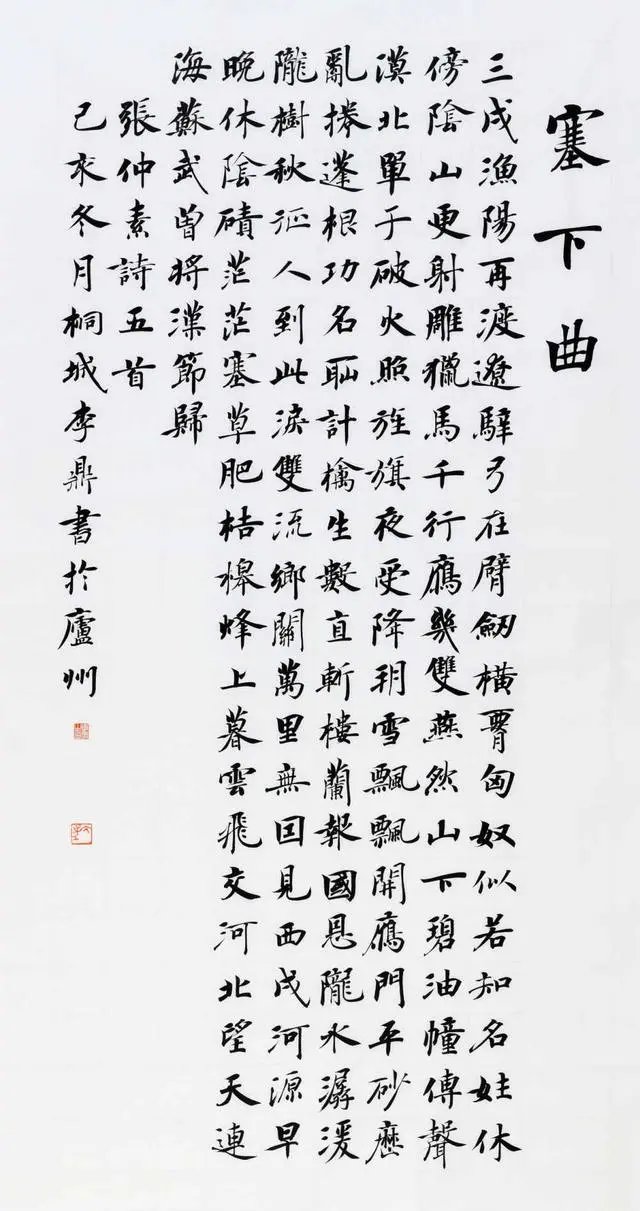 塞下曲
三戍漁陽再渡遼騂弓在臂劒橫腰匈奴似若知名姓休
傍陰山更射雕獵馬千行鴈幾雙燕然山下碧油幢傳聲
漠北單于破火照旌旗夜受降朔雪飄飄開鴈門平砂歷
亂捲蓬根功名恥計擒生數直斬樓蘭報國恩隴水潺湲
隴樹秋征人到此淚雙流鄉關萬里無因見西戍河源早
晚休陰磧茫茫塞草肥桔槔烽上暮雲飛交河北望天連
海蘇武曾將漢節歸
張仲素詩五首
己亥冬月桐城李鼎書於廬州